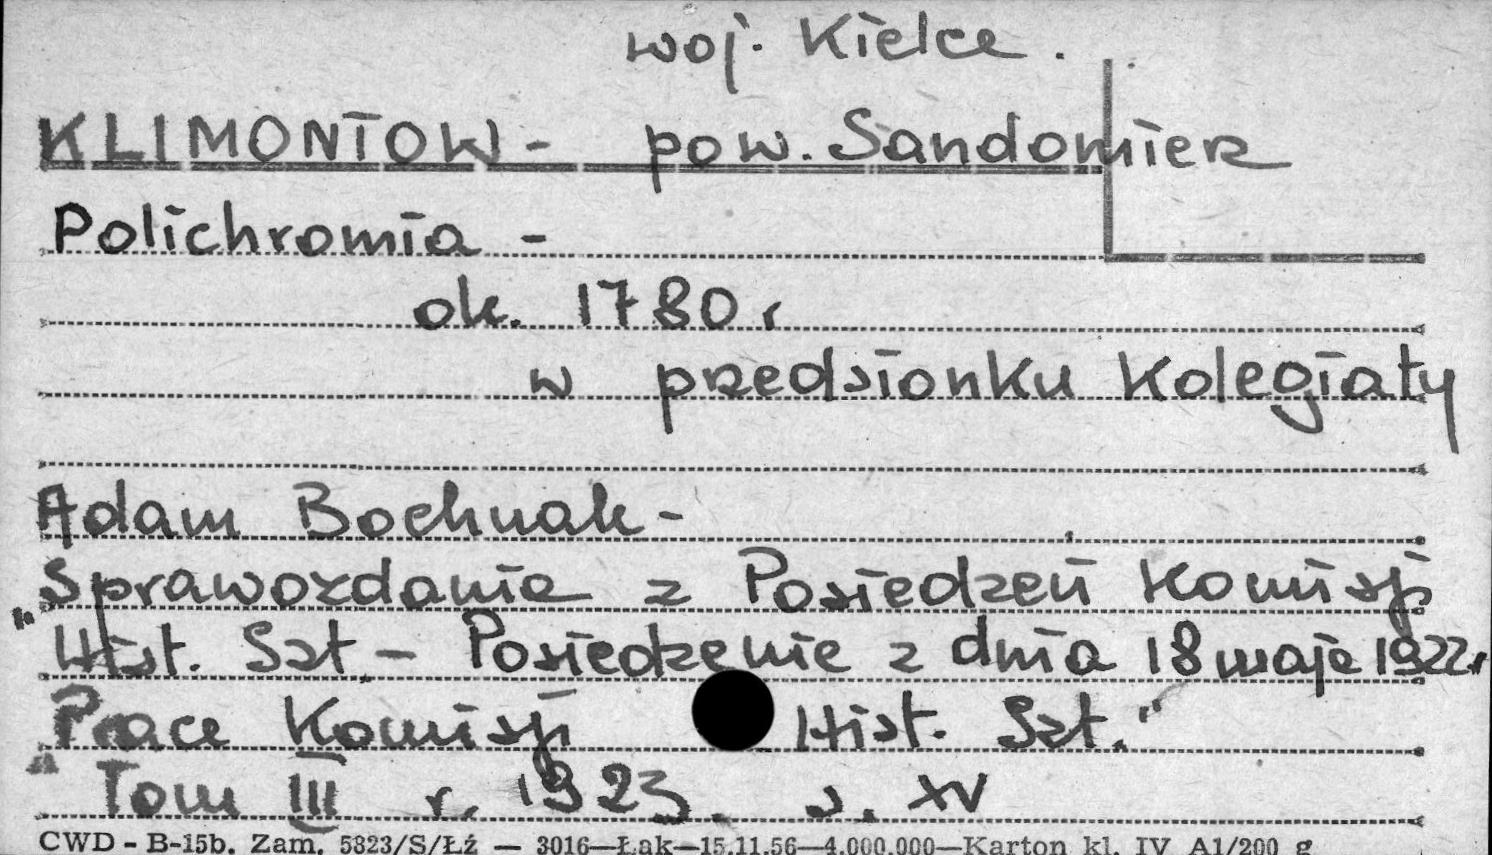 woj. Kielce.
KLIMONTOW - pow. Sandomierz
Polichromia -
ok. 1780 r
w przedsionku Kolegiaty
Adam Bochnak -
Sprawozdanie z Posiedzeń Komisji
"Hist. Szt. - Posiedzenie z dnia 18 maja 1922 r
Prace Komisji Hist. Szt."
Tom III r. 1923. s. XV
CWD - B-15b. Zam. 5823/S/Łź — 3016—Łak—15.11.56—4.000.000—Karton kl. IV A1/200 g